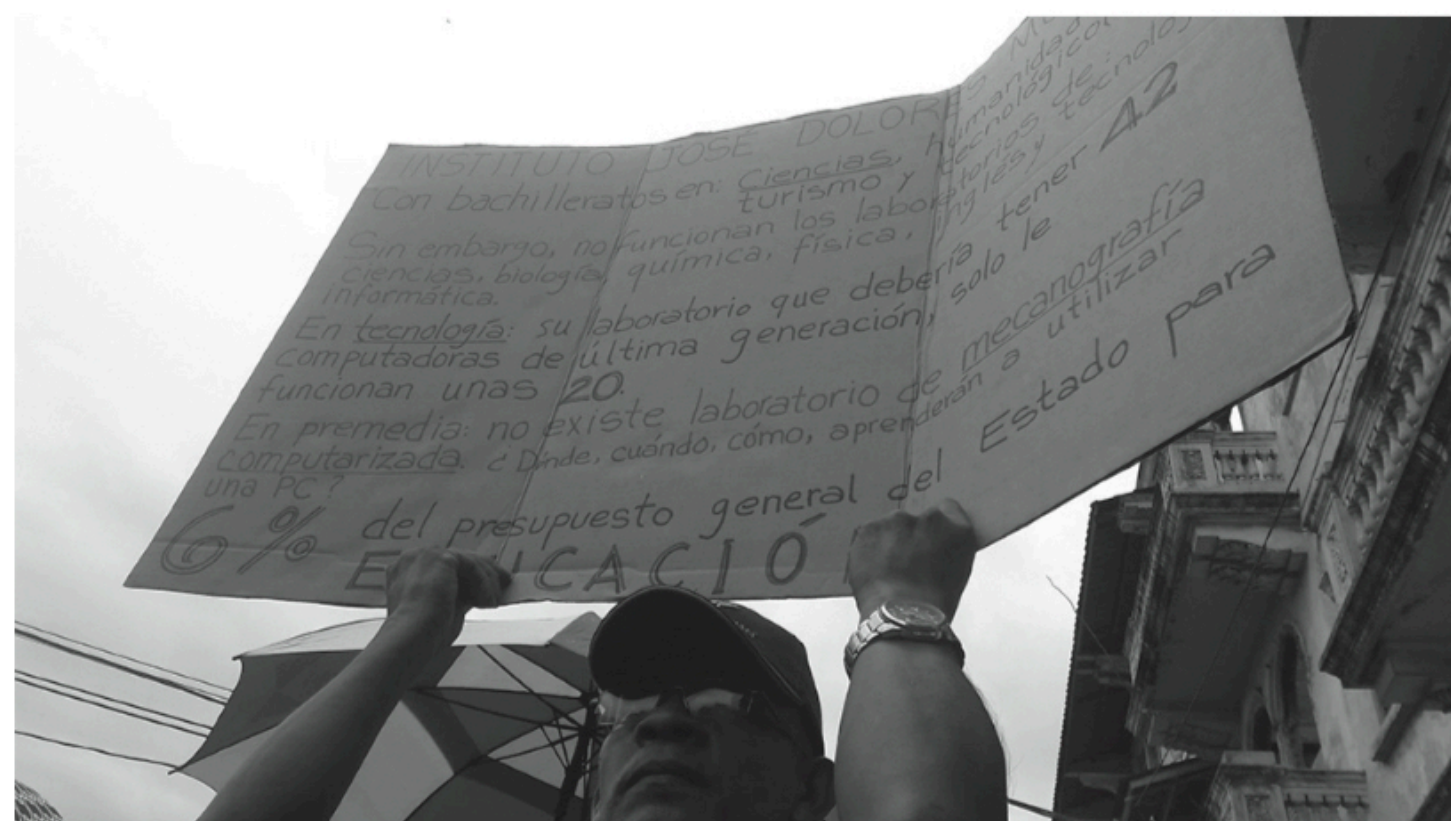 INSTITUTO JOSÉ DOLORES
"Con bachilleratos en: Ciencias, humanidades
turismo y tecnológicos
Sin embargo, no funcionan los laboratorios de:
ciencias, biología, química, física, inglés y tecnología
informática.
En tecnología: su laboratorio que debería tener 42
computadoras de última generación, solo le
funcionan unas 20.
En premedia: no existe laboratorio de mecanografía
computarizada. ¿Dónde, cuándo, cómo, aprenderán a utilizar
una PC?
6% del presupuesto general del Estado para
E CACIÓ